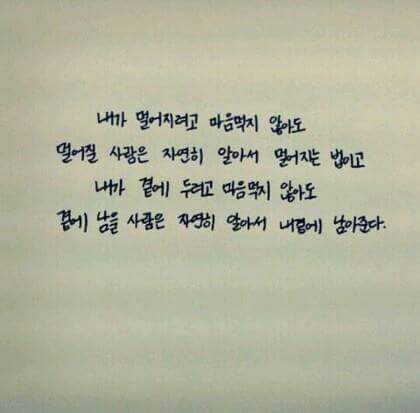 내가 멀어지려고 마음먹지 않아도
멀어질 사람은 자연히 알아서 멀어지는 법이고
내가 곁에 두려고 마음먹지 않아도
곁에 남을 사람은 자연히 알아서 내곁에 남아준다.